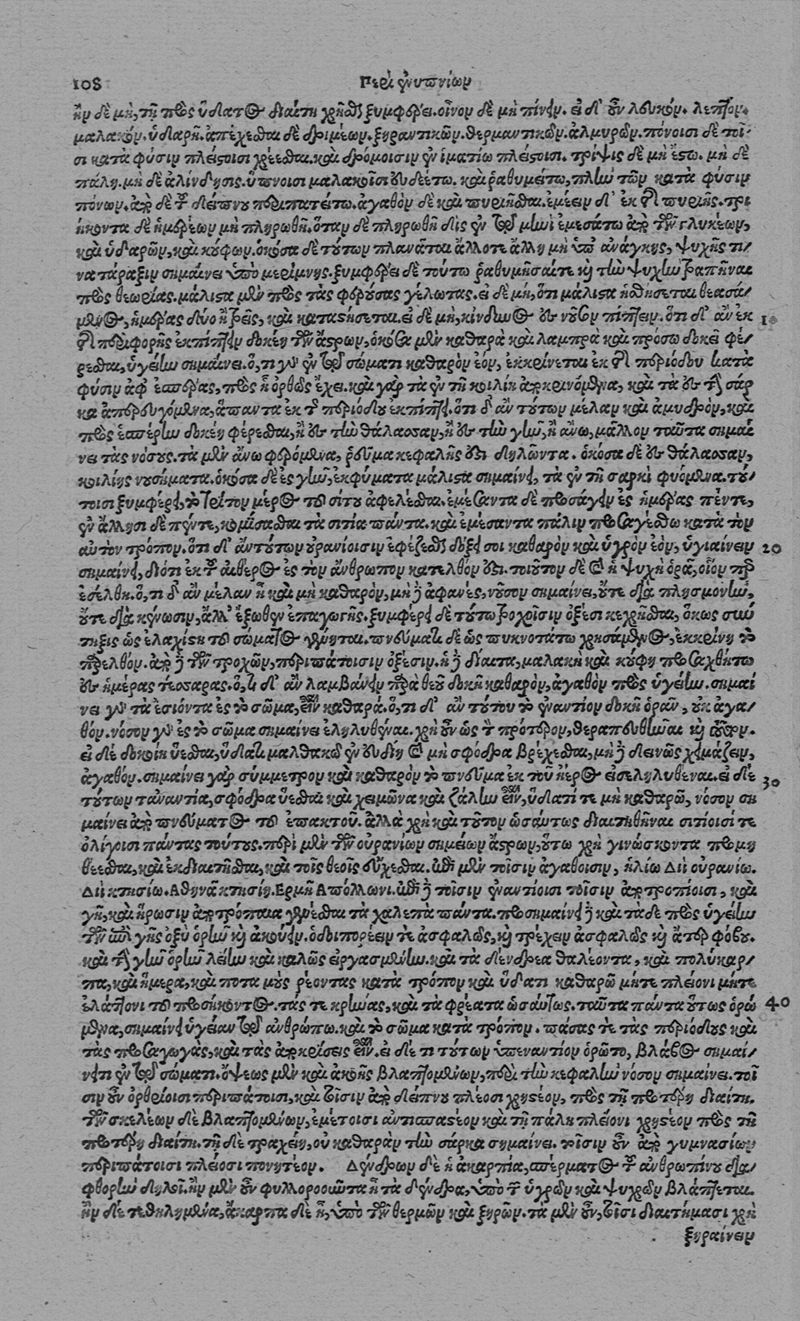 108 Περὶ ἐνυπνίων
ἢν δὲ μὴ, τῇ πρὸς ὕδατος διαίτῃ χρῆσθαι ξυμφέρει. οἶνον δὲ μὴ πίνειν. εἰ δ' οὖν λευκὸν. λεπτὸν.
μαλακὸν. ὑδαρῆ. ἀπέχεσθαι δὲ δριμέων. ξηραντικῶν. θερμαντικῶν. ἁλμυρῶν. πόνοισι δὲ τοῖ-
σι κατὰ φύσιν πλείστοισι χρέεσθαι. καὶ δρόμοισιν ἐν ἱματίῳ πλείστοισι. τρίψις δὲ μὴ ἔστω. μὴ δὲ
πάλη. μὴ δὲ ἀλίνδησις. ὕπνοισι μαλακοῖσι εὐδέτω. καὶ ῥαθυμείτω, πλὴν τῶν κατὰ φύσιν
πόνων. ἀπὸ δὲ τοῦ δείπνου περιπατείτω. ἀγαθὸν δὲ καὶ πυριῆσθαι. ἐμέειν δ' ἐκ τῆς πυριῆς. τρι
ήκοντα δὲ ἡμερέων μὴ πληρωθῇ. ὅταν δὲ πληρωθῇ δὶς ἐν τῷ μηνὶ ἐμεσάτω ἀπὸ τῶν γλυκέων,
καὶ ὑδαρῶν, καὶ κούφων. ὁκόσα δὲ τούτων πλανᾶται ἄλλοτε ἄλλῃ μὴ ὑπὸ ἀνάγκης, ψυχῆς τι-
να τάραξιν σημαίνει ὑπὸ μερίμνης. ξυμφέρει δὲ τούτῳ ῥαθυμῆσαί τε καὶ τὴν ψυχὴν τραπῆναι
πρὸς θεωρίας. μάλιστα μὲν πρὸς τὰς φερούσας γέλωτας. εἰ δὲ μὴ, ὅτι μάλιστα ἡσθήσεται θεασά-
μενος, ἡμέρας δύο ἢ τρεῖς, καὶ καταστήσεται. εἰ δὲ μὴ, κίνδυνος ἐς νοῦσον πίπτειν. ὅτι δ' ἂν ἐκ 10
τῆς περιφορῆς ἐκπίπτειν δοκέῃ τῶν ἄστρων, ὁκόσα μὲν καθαρὰ καὶ λαμπρὰ καὶ πρὸς ἕω δοκεῖ φέ-
ρεσθαι, ὑγείην σημαίνει. ὅ,τι γὰρ ἐν τῷ σώματι καθαρὸν ἐὸν, ἐκκρίνεται ἐκ τῆς περιόδου κατὰ
φύσιν ἀφ' ἑσπέρας, πρὸς ἠῶ ὀρθῶς ἔχει. καὶ γὰρ τὰ ἐν τῇ κοιλίῃ ἀποκρινόμενα, καὶ τὰ ἐς τὴν σάρ
κα ἀπερευγόμενα, ἅπαντα ἐκ τῆς περιόδου ἐκπίπτει. ὅτι δ' ἂν τούτων μέλαν καὶ ἀμυδρὸν, καὶ
πρὸς ἑσπέρην δοκέῃ φέρεσθαι, ἢ ἐς τὴν θάλασσαν, ἢ ἐς τὴν γῆν, ἢ ἄνω, μᾶλλον ταῦτα σημαί
νει τὰς νόσους. τὰ μὲν ἄνω φερόμενα, ῥεῦμα κεφαλῆς ἐστι δηλῶντα. ὁκόσα δὲ ἐς θάλασσαν,
κοιλίης νουσήματα. ὁκόσα δὲ ἐς γῆν, ἐκφύματα μάλιστα σημαίνει, τὰ ἐν τῇ σαρκὶ φυόμενα. τού-
τοισι ξυμφέρει, τὸ τρίτον μέρος τοῦ σίτου ἀφελέσθαι. ἐμέσαντα δὲ προσάγειν ἐς ἡμέρας πέντε,
ἐν ἄλλῃσι δὲ πέντε, κομίσασθαι τὰ σιτία πάντα. καὶ ἐμέσαντα πάλιν προσαγέσθω κατὰ τὸν
αὐτὸν τρόπον. ὅτι δ' ἂν τούτων οὐρανίοισιν ἐφέζεσθαι δόξῃ σοι καθαρὸν καὶ ὑγρὸν ἐὸν, ὑγιαίνειν 20
σημαίνει, διότι ἐκ τοῦ αἰθέρος ἐς τὸν ἄνθρωπον κατελθὸν ἐστι. τοιοῦτον δὲ καὶ ἡ ψυχὴ ὁρᾷ, οἷόν περ
ἐσέλθῃ. ὅ,τι δ' ἂν μέλαν ἦ καὶ μὴ καθαρὸν, μὴ δὲ ἀφανὲς, νοῦσον σημαίνει, οὔτε διὰ πλησμονὴν,
οὔτε διὰ κένωσιν, ἀλλ' ἔξωθεν ἐπαγωγῆς. ξυμφέρει δὲ τούτῳ τροχοῖσιν ὀξέσι κεχρῆσθαι, ὅκως σύν
τηξις ὡς ἐλαχίστη τοῦ σώματος γένηται. πνεύματι δὲ ὡς πυκνοτάτῳ χρησάμενος, ἐκκρίνῃ τὸ
παρελθόν. ἀπὸ δὲ τῶν τροχῶν, περιπάτοισιν ὀξέσιν. ἡ δὲ δίαιτα, μαλακὴ καὶ κούφη προσαχθήτω
ἐς ἡμέρας τέσσαρας. ὅ,τι δ' ἂν λαμβάνειν παρὰ θεοῦ δοκῇ καθαροῦ, ἀγαθὸν πρὸς ὑγείην. σημαί
νει γὰρ τὰ ἐσιόντα ἐς τὸ σῶμα, εἶναι καθαρά. ὅ,τι δ' ἂν τούτου τὸ ἐναντίον δοκῇ ὁρᾶν, οὐκ ἀγα-
θόν. νόσον γὰρ ἐς τὸ σῶμα σημαίνει ἐληλυθέναι. χρὴ οὖν ὡς τὸ πρότερον, θεραπευθῆναι καὶ τοῦτον.
εἰ δὲ δοκοίη ὕεσθαι, ὕδατι μαλθακῷ ἐν εὐδίῃ καὶ μὴ σφόδρα βρέχεσθαι, μὴ δὲ δεινῶς χειμάζειν,
ἀγαθόν. σημαίνει γὰρ σύμμετρον καὶ καθαρὸν τὸ πνεῦμα ἐκ τοῦ ἠέρος εἰσεληλυθέναι. εἰ δὲ
τούτων τἀναντία, σφόδρα ὕεσθαι καὶ χειμῶνα καὶ ζάλην εἶναι, ὕδατί τε μὴ καθαρῷ, νόσον ση 30
μαίνει ἀπὸ πνεύματος τοῦ ἐπακτοῦ. ἀλλὰ χρὴ καὶ τοῦτον ὡσαύτως διαιτηθῆναι σιτίοισί τε
ὀλίγοισι πάντας τούτους. περὶ μὲν τῶν οὐρανίων σημείων ἄστρων, οὕτω χρὴ γινώσκοντα προμη
θέεσθαι, καὶ ἐκδιαιτῆσθαι, καὶ τοῖς θεοῖς εὔχεσθαι. ἐπὶ μὲν τοῖσιν ἀγαθοῖσιν, ἡλίῳ Διὶ οὐρανίῳ.
Διὶ κτησίῳ. Ἀθηνᾷ κτησίῃ. Ἑρμῇ Ἀπόλλωνι. ἐπὶ δὲ τοῖσιν ἐναντίοισι τοῖσιν ἀποτροπίοισι, καὶ
γῇ, καὶ ἥρωσιν ἀποτρόπαια γενέσθαι τὰ χαλεπὰ πάντα. προσημαίνει δὲ καὶ τάδε πρὸς ὑγείην
τῶν ἐπὶ γῆς ὀξὺ ὁρῆν καὶ ἀκούειν. ὁδοιπορέειν τε ἀσφαλῶς, καὶ τρέχειν ἀσφαλῶς καὶ ἄτερ φόβου.
καὶ τὴν γῆν ὁρῆν λείην καὶ καλῶς ἐργασμένην. καὶ τὰ δένδρεα θαλέοντα, καὶ πολύκαρ-
πα, καὶ ἥμερα, καὶ ποταμοὺς ῥέοντας κατὰ τρόπον καὶ ὕδατι καθαρῷ μήτε πλείονι μήτε
ἐλάττονι τοῦ προσήκοντος. τάς τε κρήνας, καὶ τὰ φρέατα ὡσαύτως. ταῦτα πάντα οὕτως ὁρώ 40
μενα, σημαίνει ὑγείαν τῷ ἀνθρώπῳ. καὶ τὸ σῶμα κατὰ τρόπον. πάσας τε τὰς περιόδους καὶ
τὰς προσαγωγὰς, καὶ τὰς ἀποκρίσεις εἶναι. εἰ δέ τι τούτων ὑπεναντίον ὁρῷτο, βλάβος σημαί-
νει τι ἐν τῷ σώματι. ὄψεως μὲν καὶ ἀκοῆς βλαπτομένων, περὶ τὴν κεφαλὴν νόσον σημαίνει. τοῖ
σιν οὖν ὀρθρίοισι περιπάτοισι, καὶ τοῖσιν ἀπὸ δείπνου πλέοσι χρηστέον, πρὸς τῇ προτέρῃ διαίτῃ.
τῶν σκελέων δὲ βλαπτομένων, ἐμέτοισι ἀντισπαστέον καὶ τῇ πάλῃ πλείονι χρηστέον πρὸς τῇ
προτέρῃ διαίτῃ. γῆ δὲ τραχείη, οὐ καθαρὰν τὴν σάρκα σημαίνει. τοῖσιν οὖν ἀπὸ γυμνασίων
περιπάτοισι πλείοσι πονητέον. Δένδρων δὲ ἡ ἀκαρπία, σπέρματος τοῦ ἀνθρωπίνου δια-
φθορὴν δηλοῖ. ἢν μὲν οὖν φυλλοροοῦντα ᾖ τὰ δένδρα, ὑπὸ τῶν ὑγρῶν καὶ ψυχρῶν βλάπτεται.
ἢν δὲ τεθηλημένα, ἄκαρπα δὲ ᾖ, ὑπὸ τῶν θερμῶν καὶ ξηρῶν. τὰ μὲν οὖν, τοῖσι διαιτήμασι χρὴ
ξηραίνειν